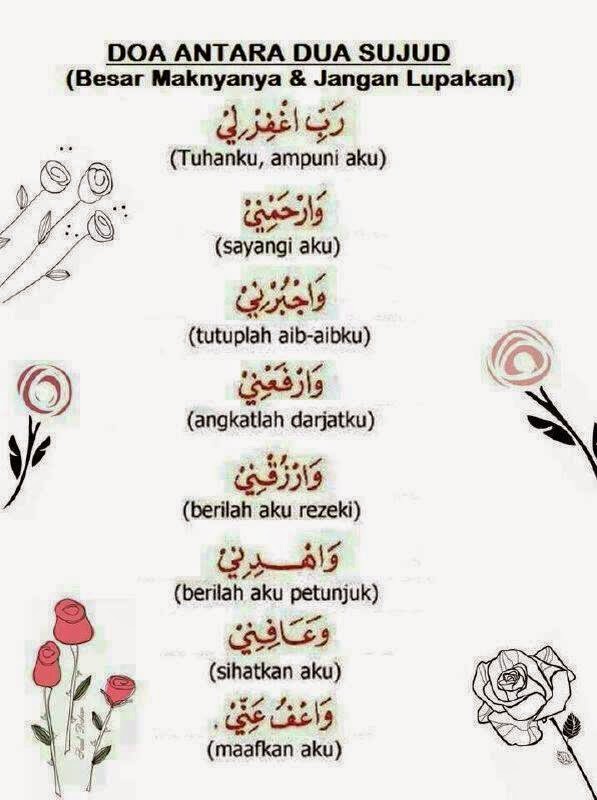 DOA ANTARA DUA SUJUD
(Besar Maknyanya & Jangan Lupakan)
رَبِّ اغْفِرْ لِيْ
(Tuhanku, ampuni aku)
وَارْحَمْنِيْ
(sayangi aku)
وَاجْبُرْنِيْ
(tutuplah aib-aibku)
وَارْفَعْنِيْ
(angkatlah darjatku)
وَارْزُقْنِيْ
(berilah aku rezeki)
وَاهْدِنِيْ
(berilah aku petunjuk)
وَعَافِنِيْ
(sihatkan aku)
وَاعْفُ عَنِّيْ.
(maafkan aku)